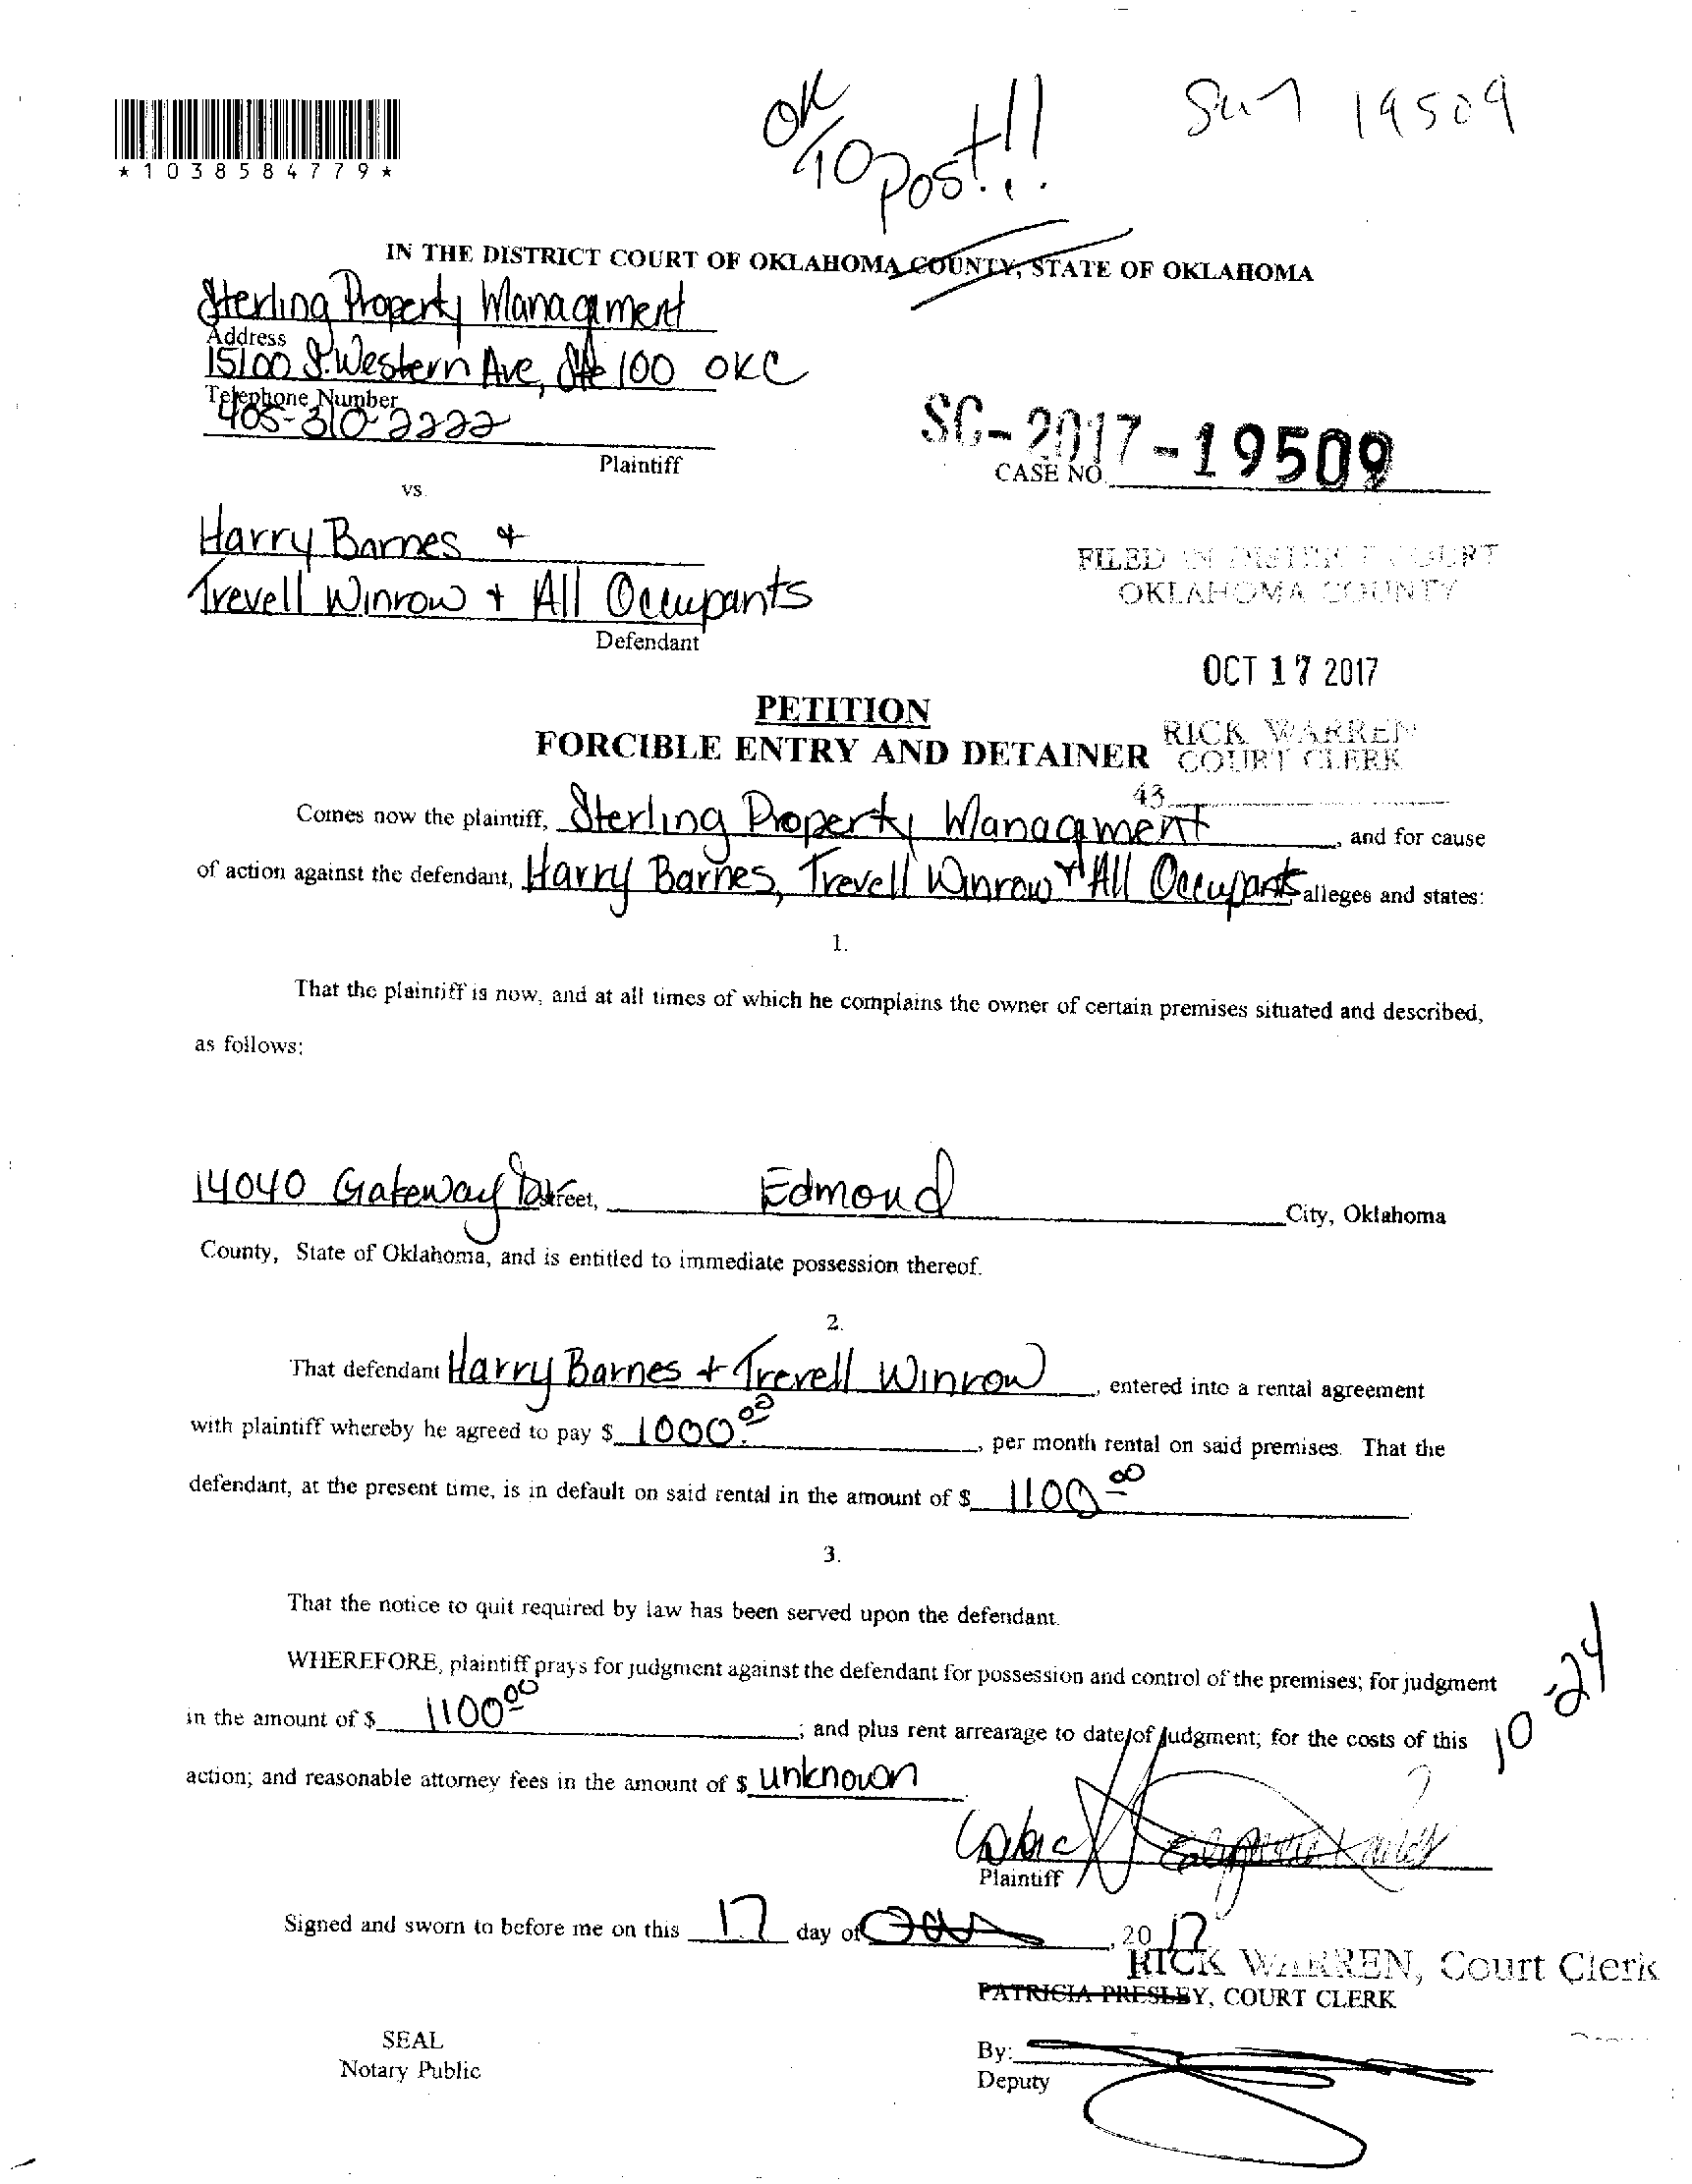 OK TO post!!!
19509
*1038584779*
IN THE DISTRICT COURT OF OKLAHOMA COUNTY, STATE OF OKLAHOMA
Sterling Property Management
Address
15100 S. Western Ave, Ste 100 OKC
Telephone Number
405-310-2222
Plaintiff
SC-2017-19509
CASE NO.
vs.
Harry Barnes +
Trevell Winrow + All Occupants
Defendant
FILED IN DISTRICT COURT
OKLAHOMA COUNTY
OCT 17 2017
RICK WARREN
COURT CLERK
43
PETITION
FORCIBLE ENTRY AND DETAINER
Comes now the plaintiff, Sterling Property Management, and for cause
of action against the defendant, Harry Barnes, Trevell Winrow + All Occupants alleges and states:
1.
That the plaintiff is now, and at all times of which he complains the owner of certain premises situated and described,
as follows:
14040 Gateway Dr Street, Edmond City, Oklahoma
County, State of Oklahoma, and is entitled to immediate possession thereof.
2.
That defendant Harry Barnes + Trevell Winrow, entered into a rental agreement
with plaintiff whereby he agreed to pay $ 1000.00, per month rental on said premises. That the
defendant, at the present time, is in default on said rental in the amount of $ 1100 00
3.
That the notice to quit required by law has been served upon the defendant.
WHEREFORE, plaintiff prays for judgment against the defendant for possession and control of the premises; for judgment
in the amount of $ 1100 00; and plus rent arrearage to date of judgment; for the costs of this
action; and reasonable attorney fees in the amount of $ unknown
10-24
Plaintiff
Signed and sworn to before me on this 17 day of Oct, 20 17
RICK WARREN, Court Clerk
PATRICIA PRESLEY, COURT CLERK
SEAL
Notary Public
By:
Deputy